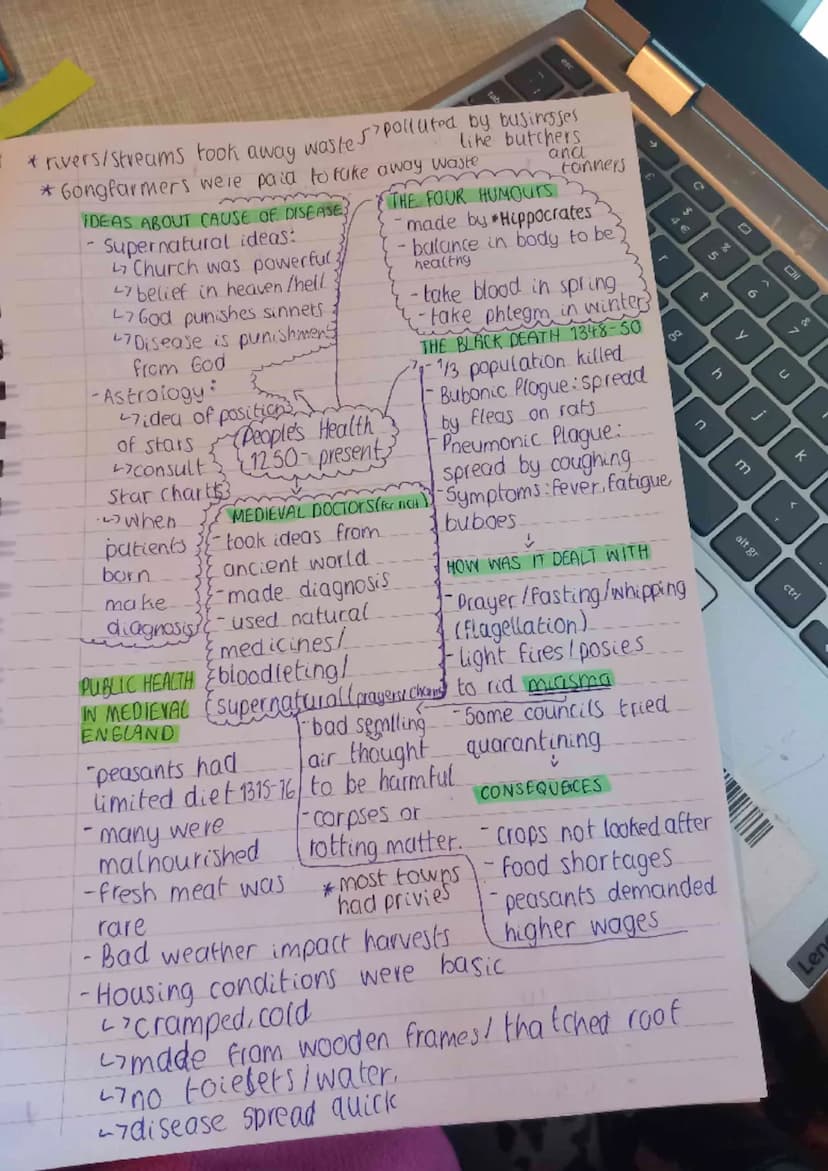 * rivers/streams took away waste ↳ polluted by businesses
like butchers
and
tanners
* Gongfarmers were paid to take away waste
IDEAS ABOUT CAUSE OF DISEASE
- Supernatural ideas:
↳ Church was powerful
↳ belief in heaven/hell
↳ God punishes sinners
↳ Disease is punishment
from God
- Astrology:
↳ idea of position
of stars
↳ consult
star charts
↳ when
patients
born
make
diagnosis
THE FOUR HUMOURS
- made by *Hippocrates
- balance in body to be
healthy
- take blood in spring
- take phlegm in winter
People's Health
1250- present
THE BLACK DEATH 1348-50
- 1/3 population killed
- Bubonic Plague: spread
by fleas on rats
- Pneumonic Plague:
spread by coughing
- Symptoms: fever, fatigue,
buboes
MEDIEVAL DOCTORS (for rich)
- took ideas from
ancient world
- made diagnosis
- used natural
medicines/
bloodleting/
supernatural (prayers/charms)
HOW WAS IT DEALT WITH
- Prayer/fasting/whipping
(flagellation)
- light fires/posies
to rid miasma
- Some councils tried
quarantining
- bad semlling
air thought
to be harmful
- corpses or
rotting matter.
CONSEQUECES
- crops not looked after
- food shortages
- peasants demanded
higher wages
PUBLIC HEALTH
IN MEDIEVAL
ENGLAND
- peasants had
limited diet 1315-16
- many were
malnourished
- fresh meat was
rare
* most towns
had privies
- Bad weather impact harvests
- Housing conditions were basic
↳ cramped, cold
↳ made from wooden frames/ thatched roof
↳ no toielets/water.
↳ disease spread quick
esc
tab
r
t
y
u
g
h
j
k
n
m
alt gr
ctrl
$
4 €
%
5
^
6
&
7
8
Len